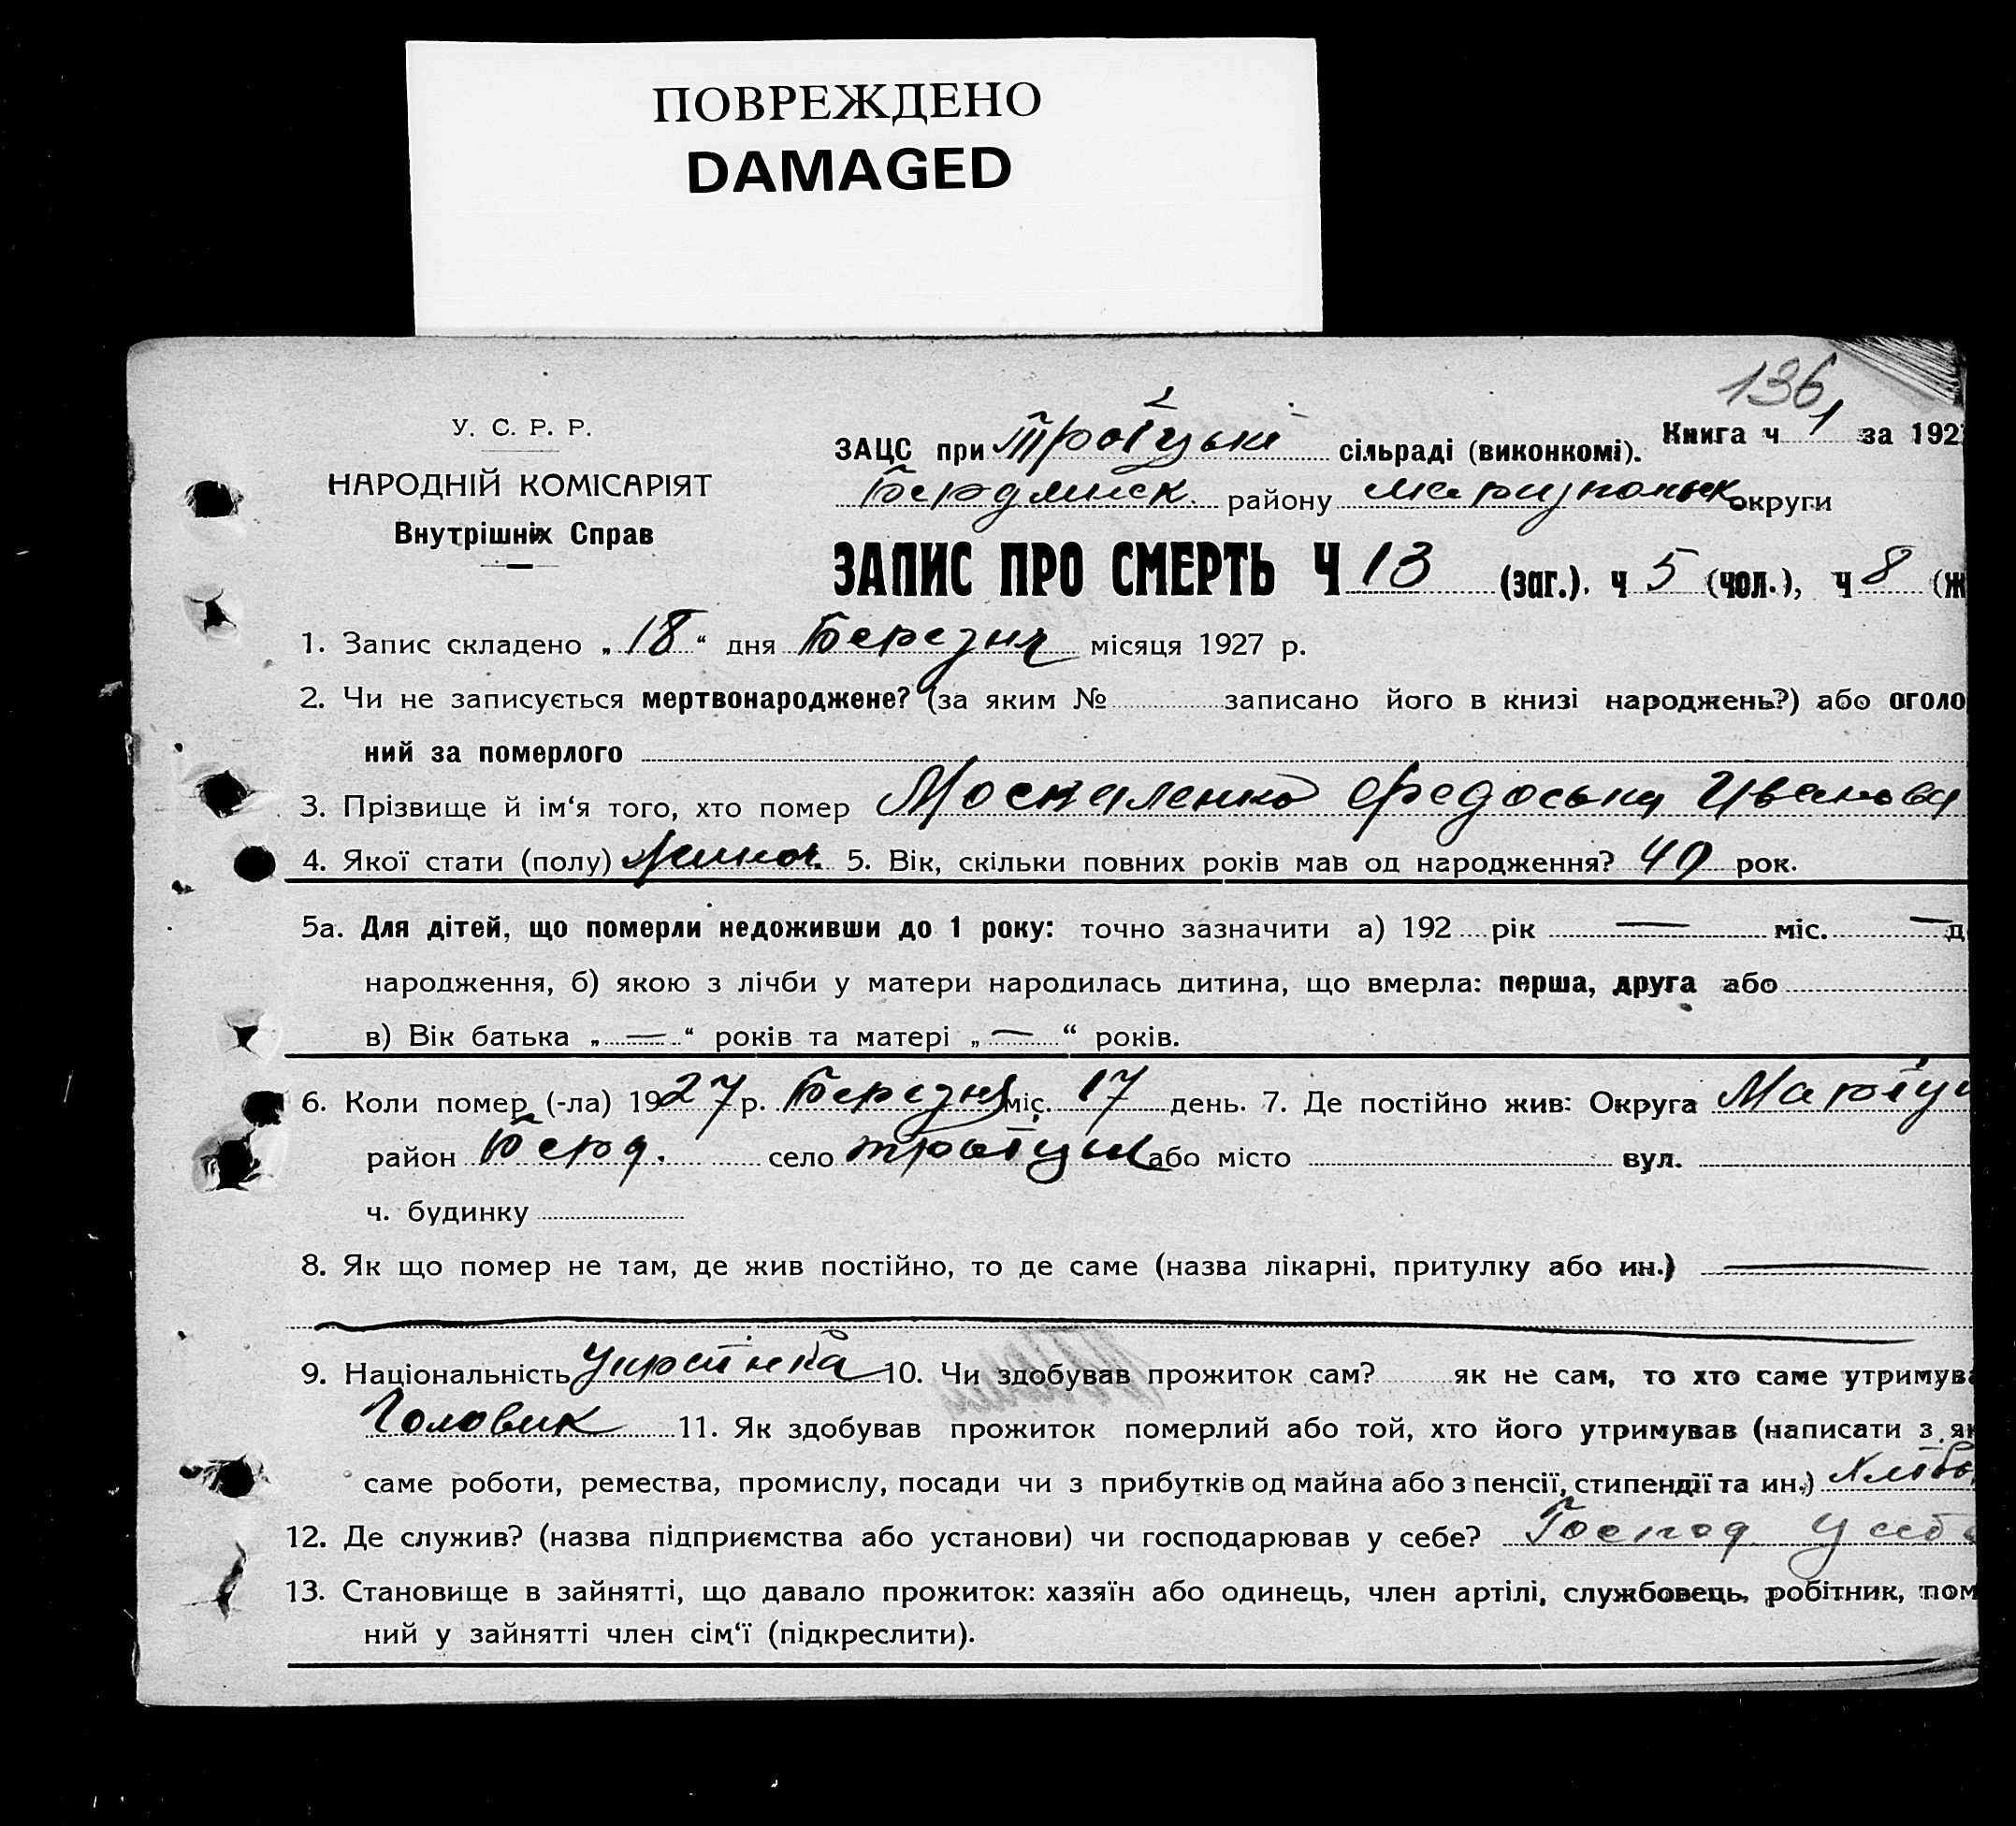 ПОВРЕЖДЕНО
DAMAGED
136
У. С. Р. Р.
НАРОДНІЙ КОМІСАРІЯТ
Внутрішніх Справ
2
ЗАЦС при Троїцькі сільраді (виконкомі). Книга ч 1 за 192
Бердянск. району Мариупольск округи
ЗАПИС ПРО СМЕРТЬ Ч 13 (заг.). ч 5 (чол.), ч 8 (ж
1. Запис складено „ 18 “ дня Березня місяця 1927 р.
2. Чи не записується мертвонароджене? (за яким № записано його в книзі народжень?) або оголо
ний за померлого
3. Прізвище й ім‘я того, хто помер Москаленко Федоська Иванова
4. Якої стати (полу) 5. Вік, скільки повних років мав од народження? 49 рок.
5а. Для дітей, що померли недоживши до 1 року: точно зазначити а) 192 рік — міс. — д
народження, б) якою з лічби у матери народилась дитина, що вмерла: перша, друга або
в) Вік батька „ — “ років та матері „ — “ років.
6. Коли помер (-ла) 1927 р. Березня міс. 17 день. 7. Де постійно жив: Округа Маріу
район Берд. село Троїцьк або місто вул.
ч. будинку
8. Як що помер не там, де жив постійно, то де саме (назва лікарні, притулку або ин.) —
9. Національність Украінка 10. Чи здобував прожиток сам? як не сам, то хто саме утримува
Головик 11. Як здобував прожиток померлий або той, хто його утримував (написати з як
саме роботи, ремества, промислу, посади чи з прибутків од майна або з пенсії, стипендії та ин.) Хліб
12. Де служив? (назва підприємства або установи) чи господарював у себе? Господ у себе
13. Становище в зайнятті, що давало прожиток: хазяїн або одинець, член артілі, службовець, робітник, пом
ний у зайнятті член сім‘ї (підкреслити).